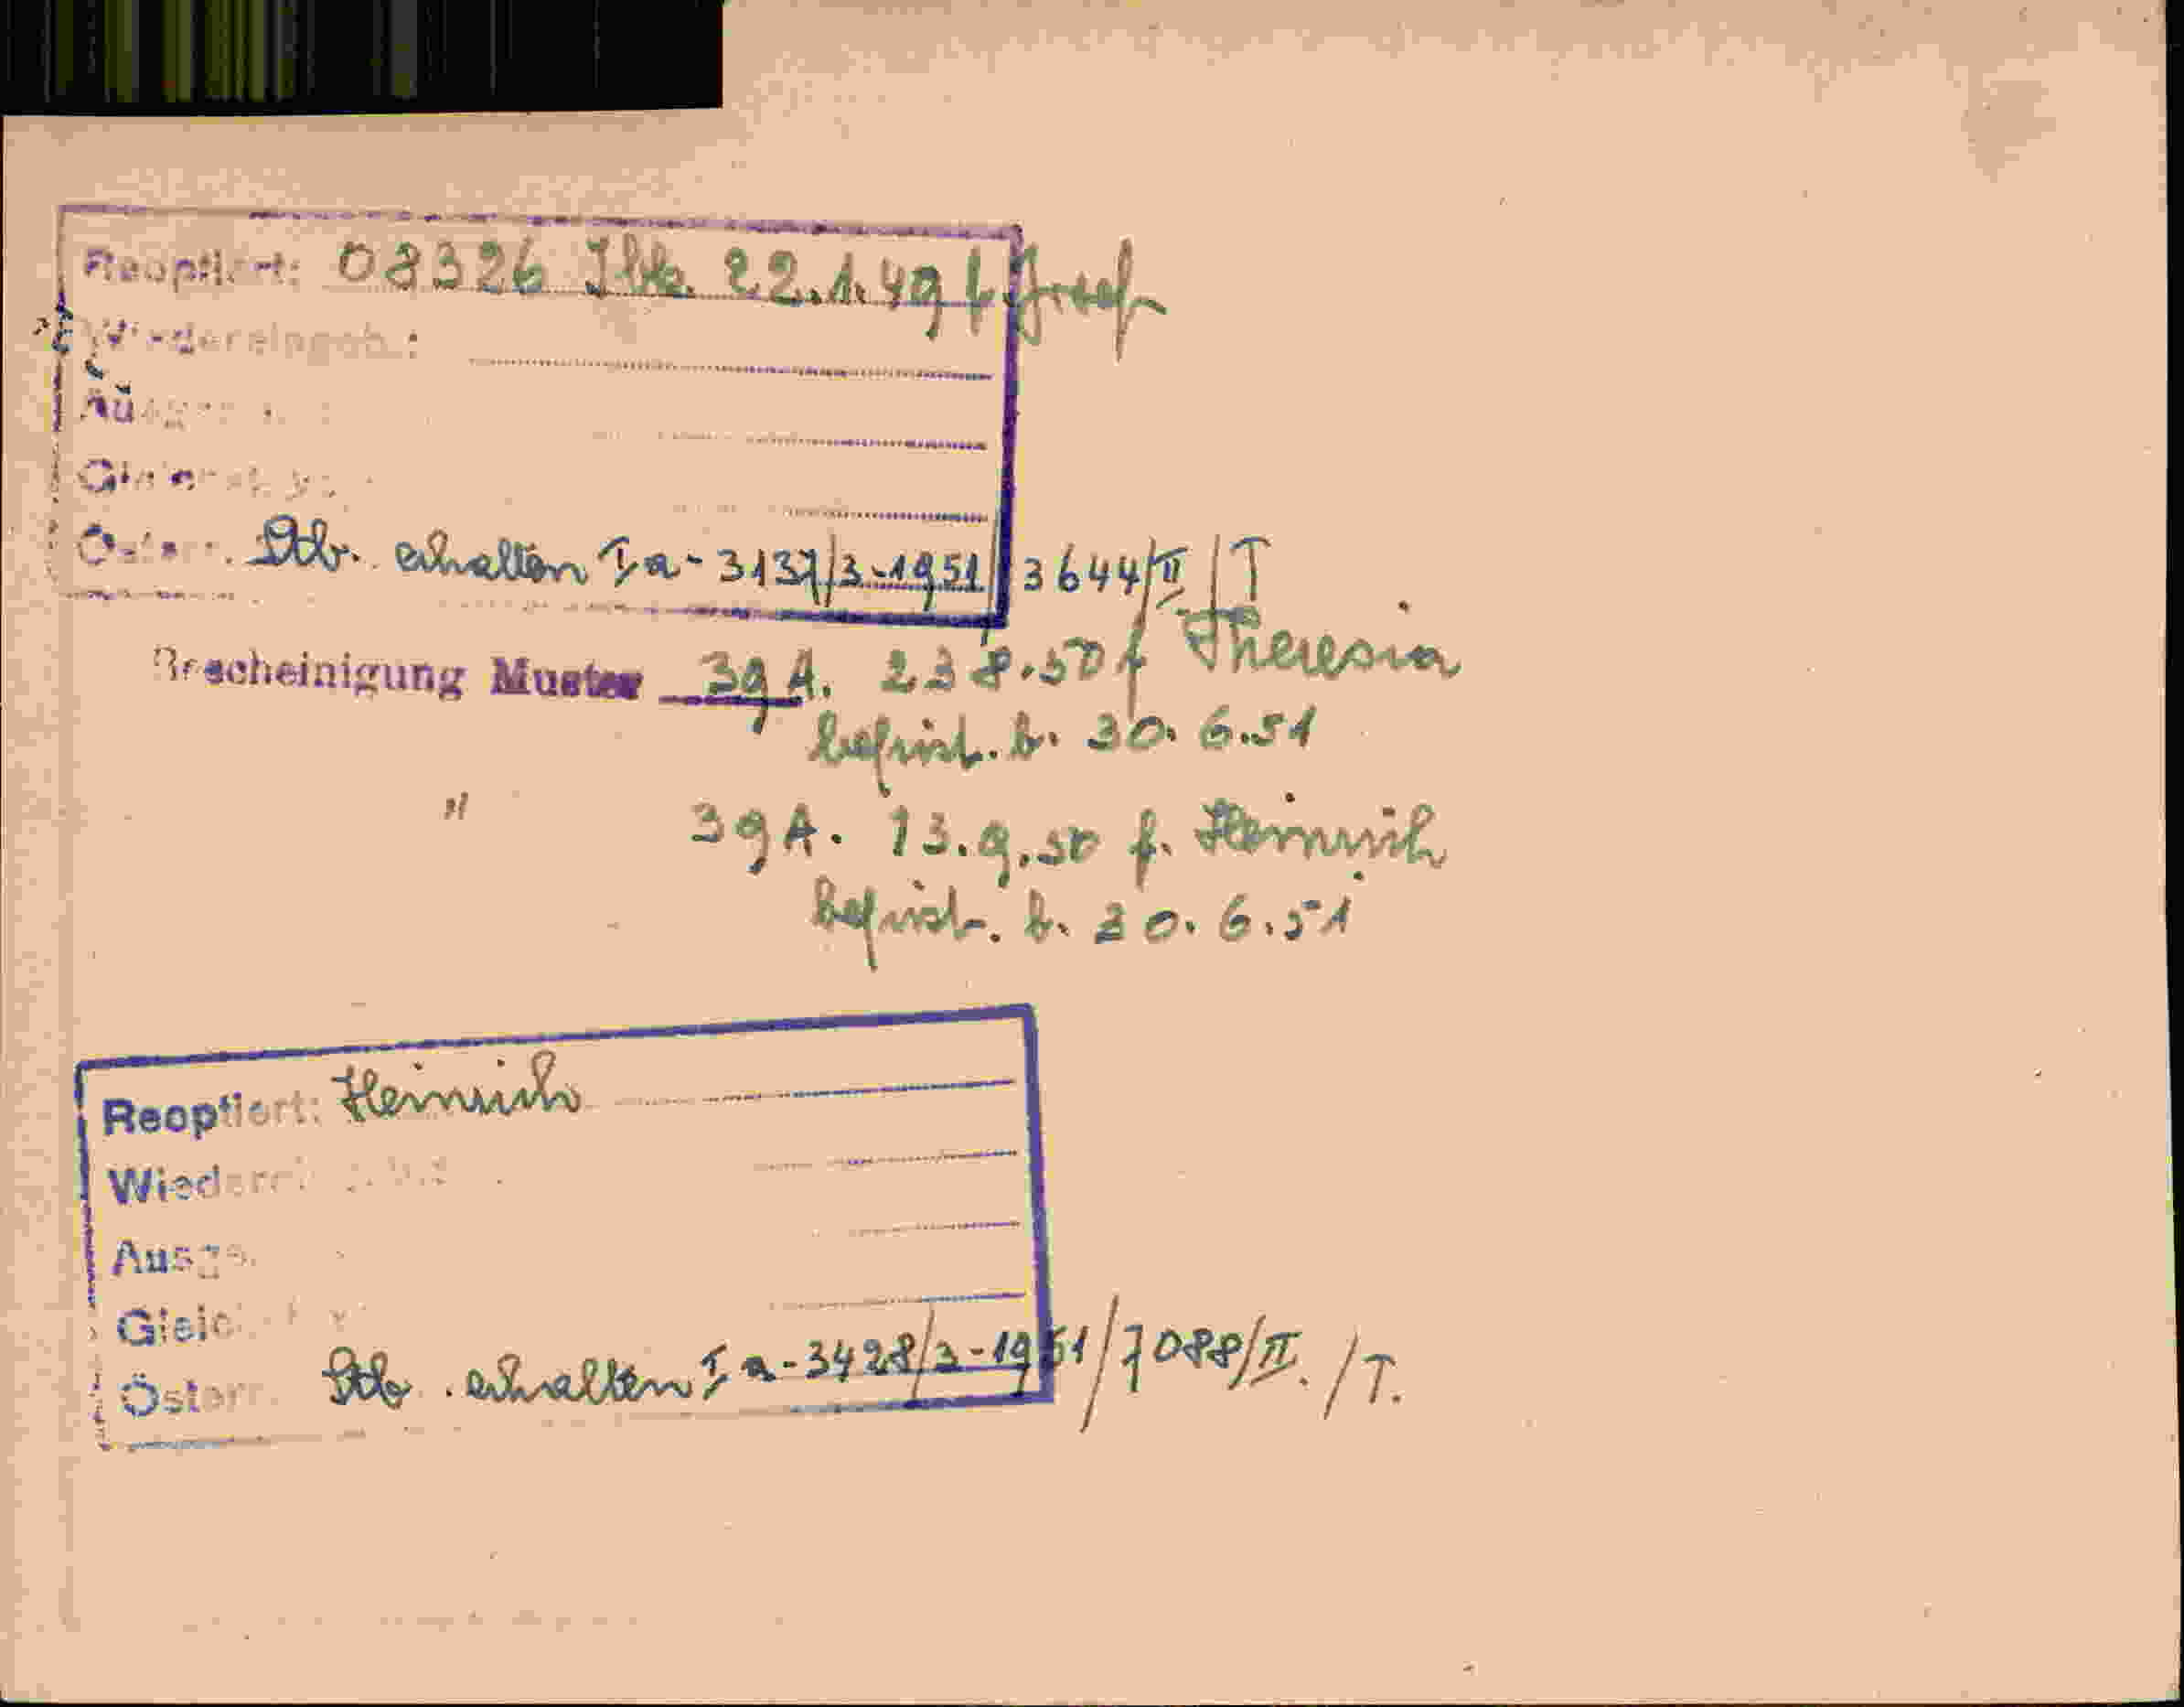 Reoptiert: 08326 Jbk. 22.1.49 f Josef
Wiedereingeb.:
Ausge
Gleichst
Österr. Stb. erhalten Ia-3137/3-1951/3644/II/T
Bescheinigung Muster 39 A. 23 8.50 f Theresia
befrist. b. 30. 6.51
" 39 A. 13.9.50 f. Heinrich
befrist. b. 30. 6.51
Reoptiert: Heinrich
Wiederei
Ausge
Gleich
Österr. Stb. erhalten Ia-3428/3-1951/7088/II./T.